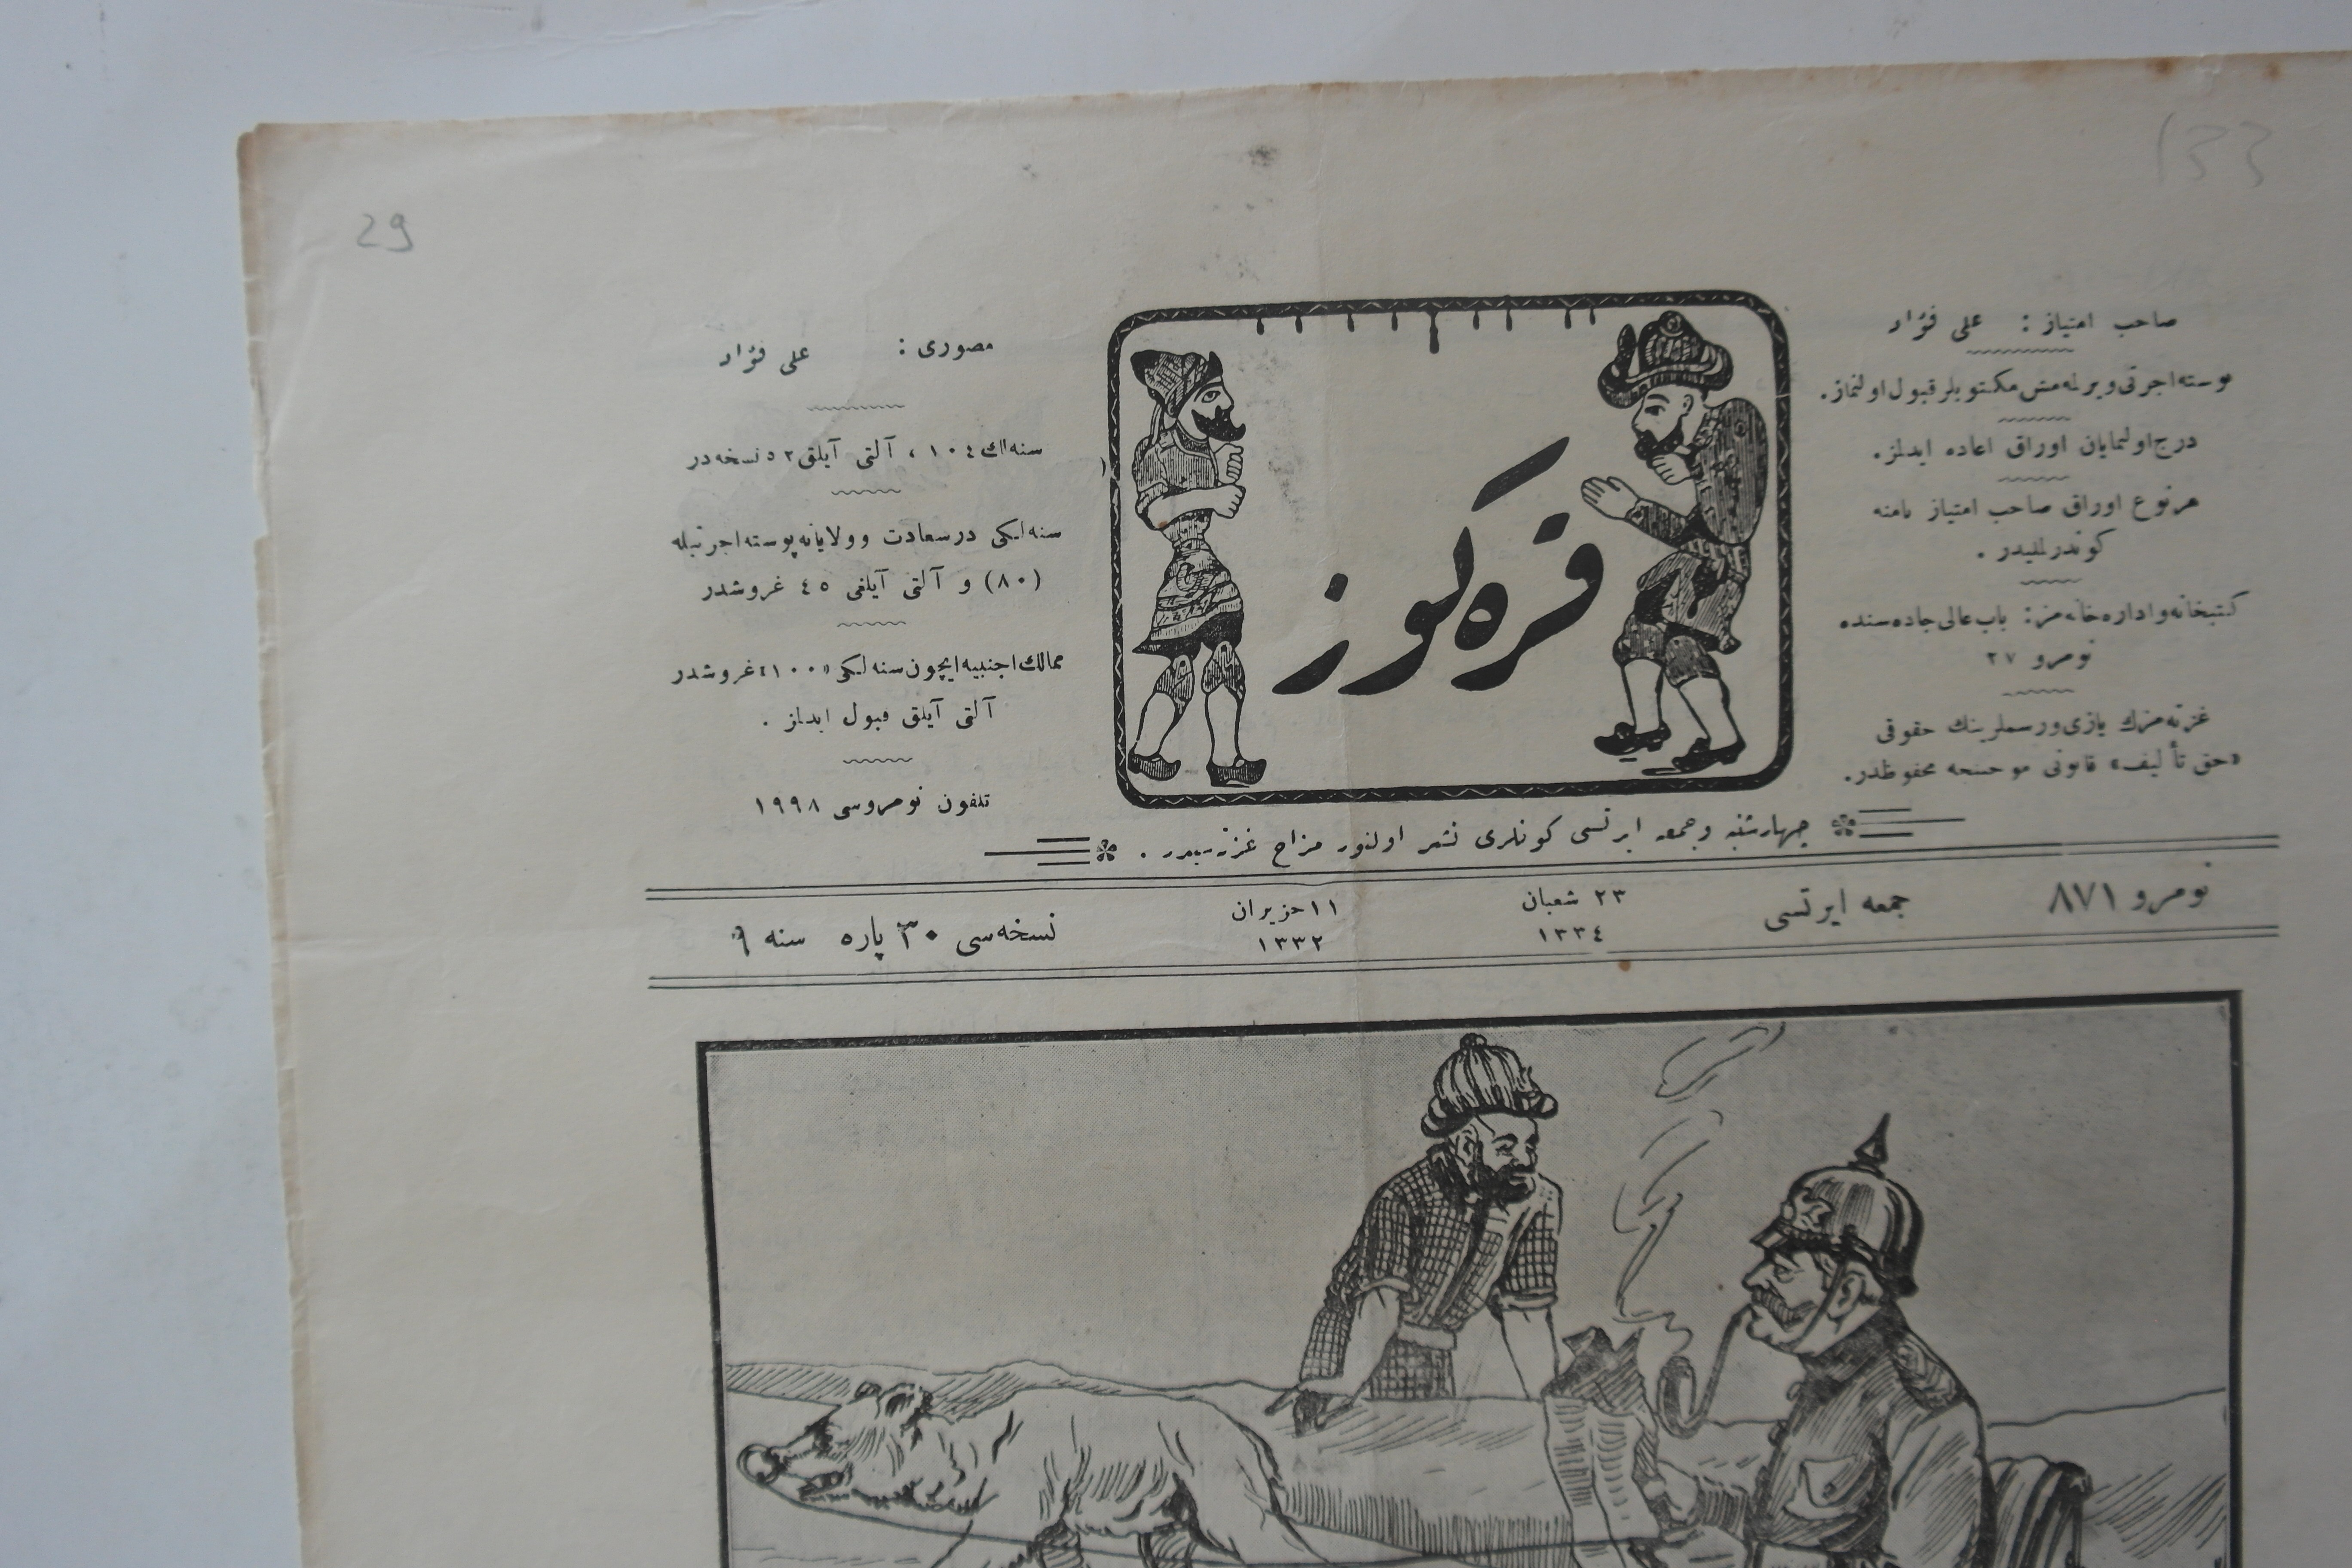 133
29
صاحب امتیاز : علی فؤاد
پوسته اجرتی ویرلمه‌مش مکتوبلر قبول اولنماز.
درج اولنمایان اوراق اعاده ایدلز.
هر نوع اوراق صاحب امتیاز نامنه
کوندرلملیدر .
کتبخانه و اداره‌خانه‌مز : باب عالی جاده‌سنده
نومرو ٢٧
غزته‌مزك یازی و رسملرینك حقوقی
«حق تألیف» قانونی موجبنجه محفوظدر.
قره‌کوز
مصوری : علی فؤاد
سنه‌لك ١٠٤ ، آلتی آیلق ٥٢ نسخه‌در
سنه‌لکی درسعادت و ولایاته پوسته اجرتیله
(٨٠) و آلتی آیلغی ٤٥ غروشدر
ممالك اجنبیه ایچون سنه‌لکی «١٠٠» غروشدر
آلتی آیلق قبول ایدلز .
تلفون نومروسی ١٩٩٨
چهارشنبه و جمعه ایرتسی کونلری نشر اولنور مزاح غزته‌سیدر .
نومرو ٨٧١
جمعه ایرتسی
٢٣ شعبان
١٣٣٤
١١ حزیران
١٣٣٢
نسخه‌سی ٣٠ پاره
سنه ٩